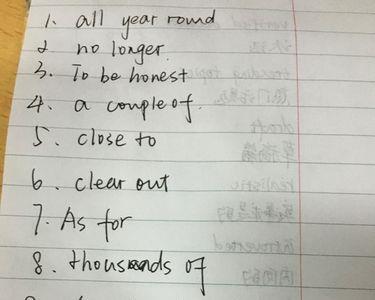 1. all year round
2. no longer.
3. To be honest
4. a couple of.
5. close to
6. clear out
7. As for
8. thousands of